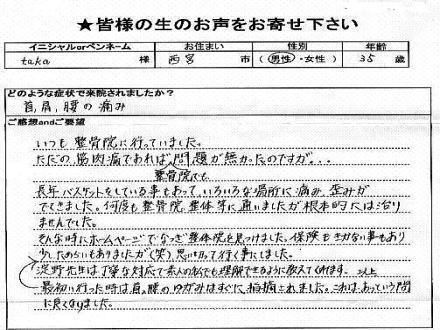 ★皆様の生のお声をお寄せ下さい
イニシャルorペンネーム お住まい 性別 年齢
taka 様 西宮 市 (男性・女性) 35 歳
どのような症状で来院されましたか?
首,肩,腰の痛み
ご感想andご要望
いつも整骨院に行っていました。
ただの筋肉痛であれば、問題が無かったのですが...
整骨院でも
長年バスケットをしている事もあって、いろいろな場所に痛み、歪みが
でてきました。何度も整骨院、整体等に通いましたが根本的には治り
ませんでした。
そんな時にホームページでなっぎ整体院を見つけました。保険もきかない事もあり
少しためらいもありましたが(笑)思い切って行く事にしました。
淀野先生は丁寧な対応で素人の私でも理解できるように教えてくれます。以上
最初行った時は肩,腰のゆがみはすぐに指摘されました。これはあっという間
に良くなりました。